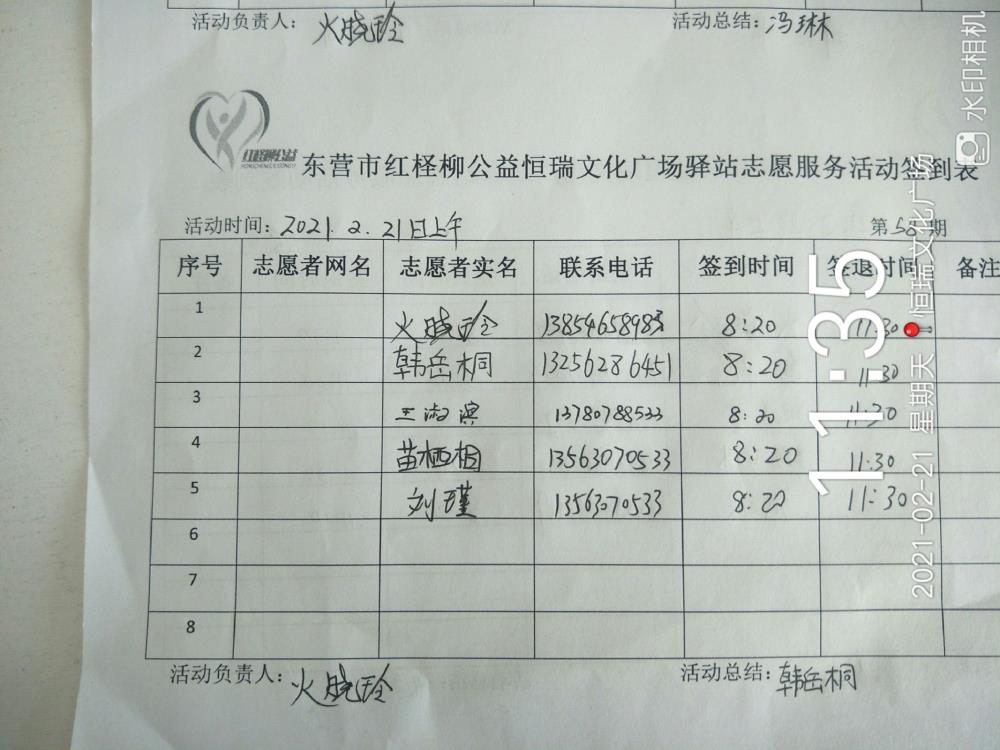 活动负责人：火晓玲 活动总结：冯琳
红柽柳公益
东营市红柽柳公益恒瑞文化广场驿站志愿服务活动签到表
活动时间：2021.2.21日上午 第58期
序号 志愿者网名 志愿者实名 联系电话 签到时间 签退时间 备注
1 火晓玲 8:20 11:30
2 韩岳桐 13256286451 8:20 11:30
3 王淑滨 13780788533 8:20 11:30
4 苗栖桐 13563070533 8:20 11:30
5 刘瑾 13563070533 8:20 11:30
6
7
8
活动负责人：火晓玲 活动总结：韩岳桐
11:35
2021-02-21 星期天 恒瑞文化广场
水印相机